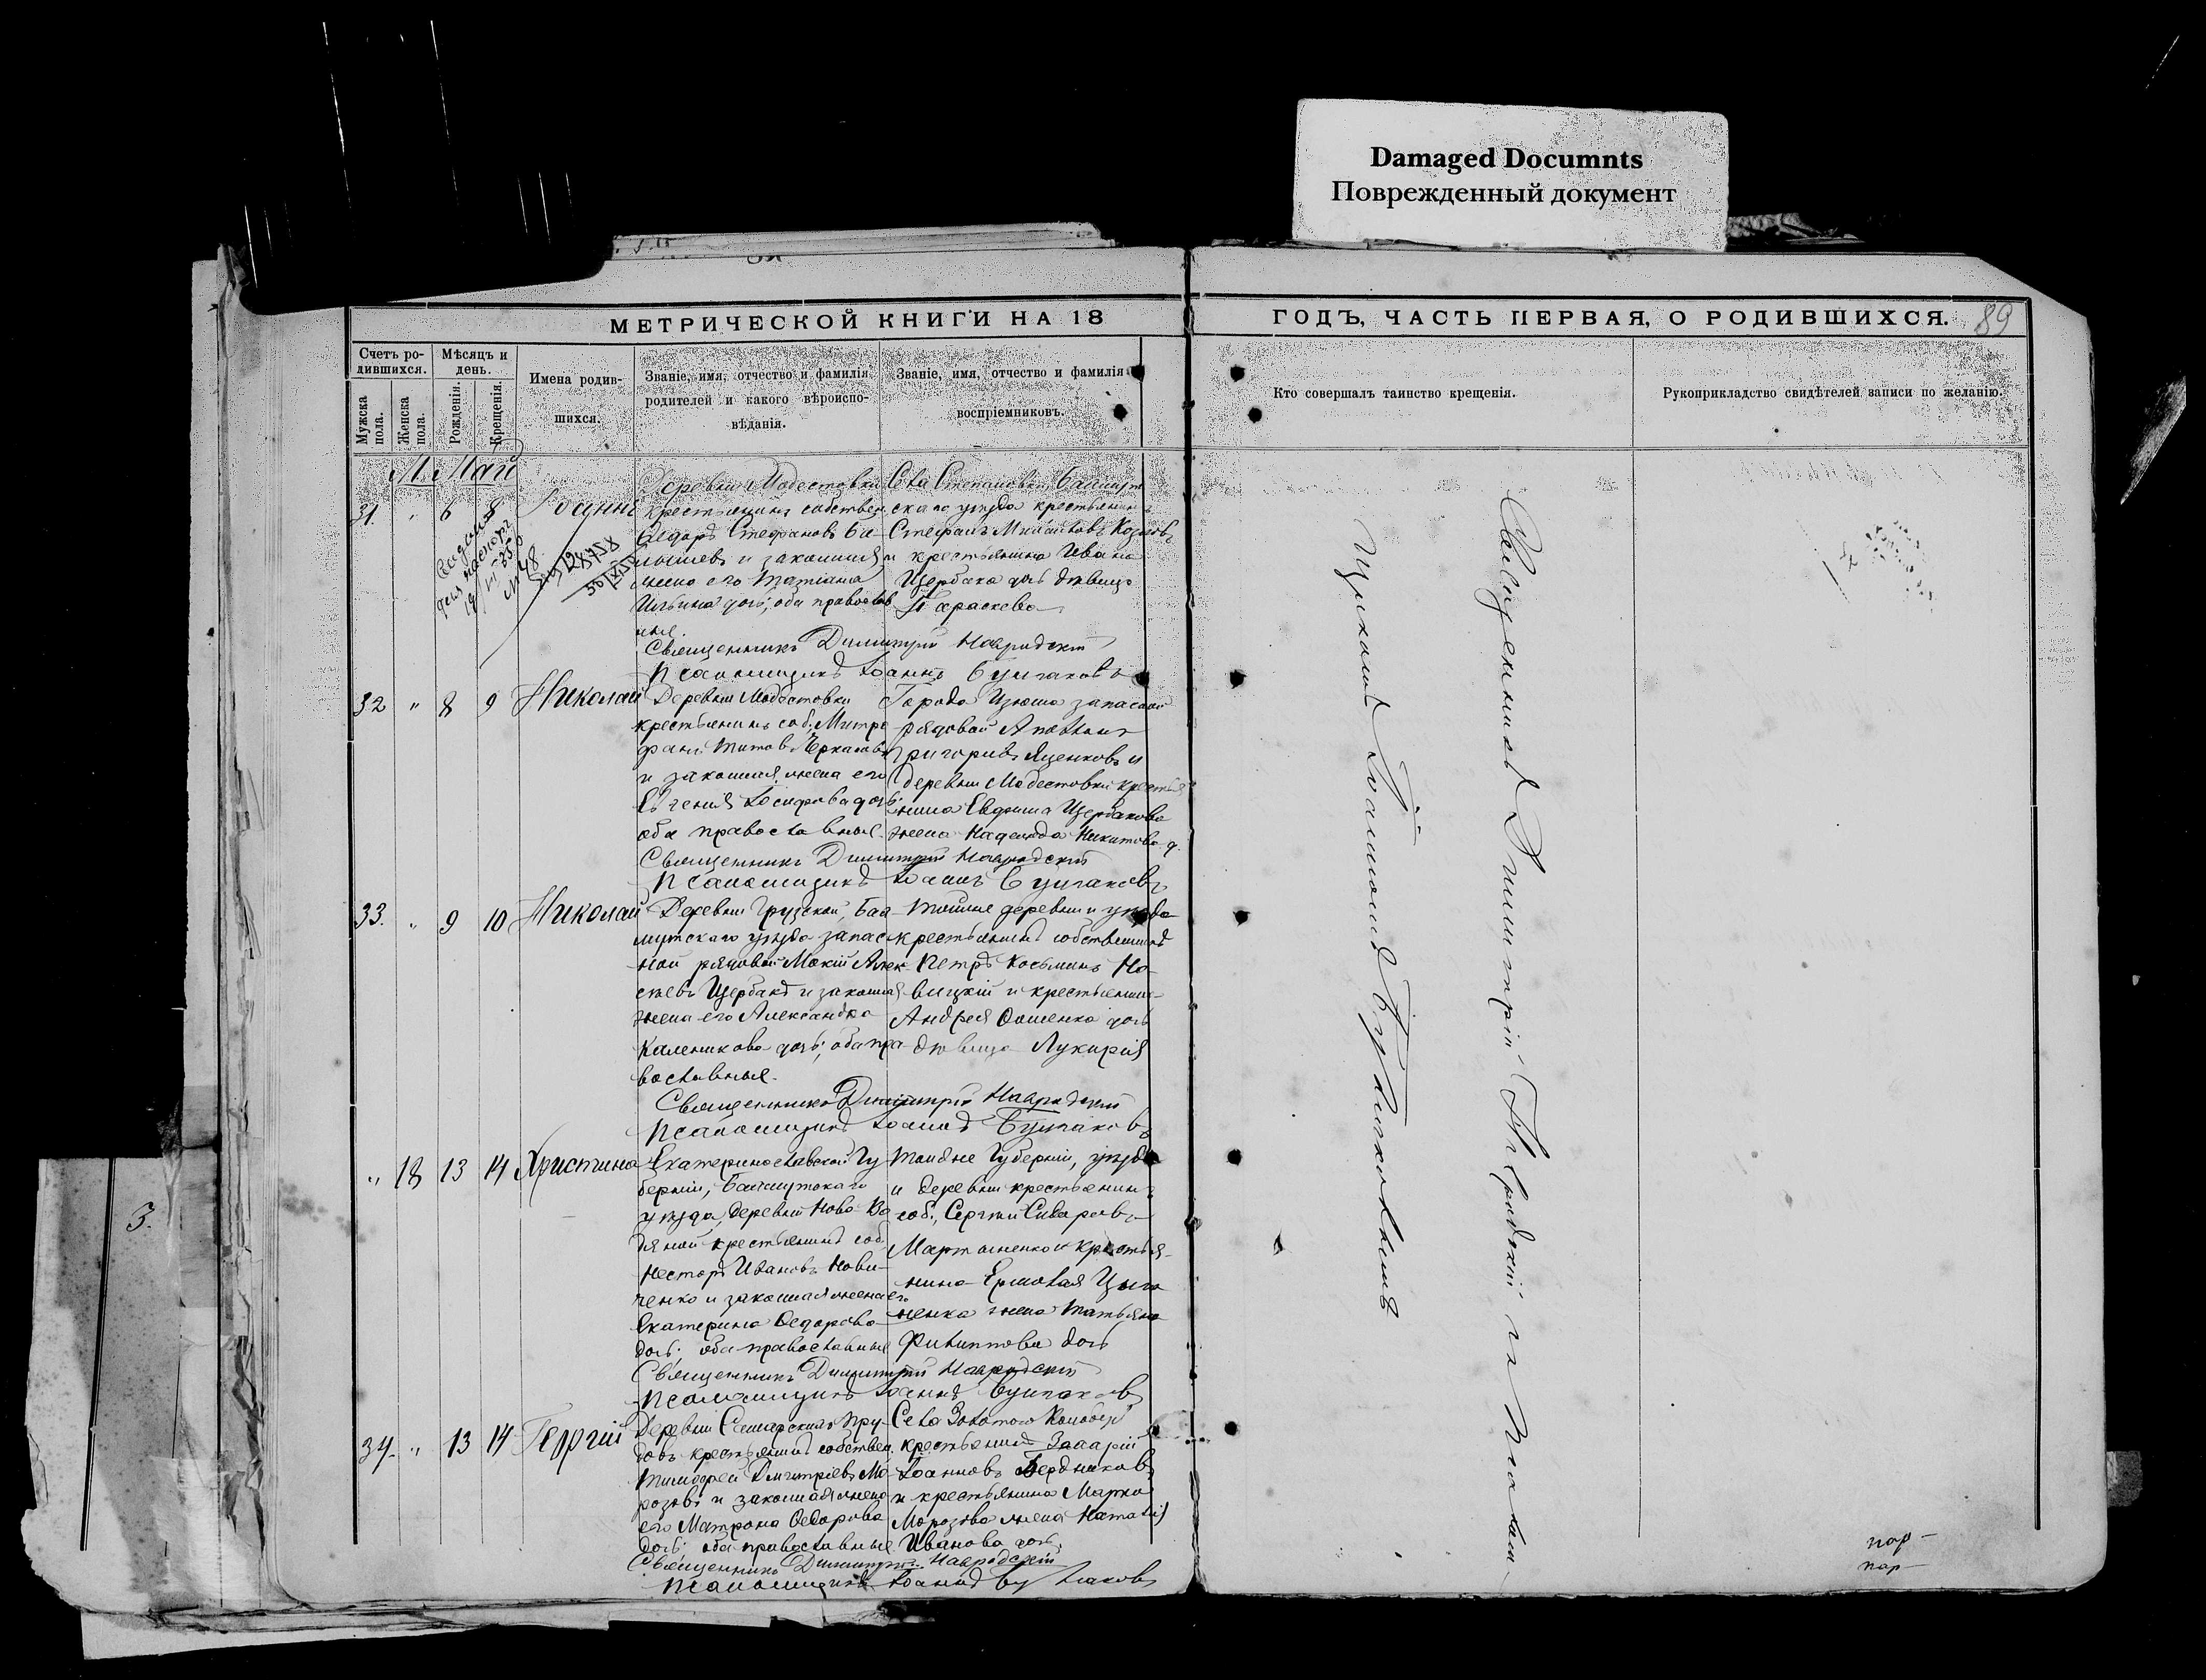 Damaged Documnts
Поврежденный документ
МЕТРИЧЕСКОЙ КНИГИ НА 18
ГОДЪ, ЧАСТЬ ПЕРВАЯ, О РОДИВШИХСЯ.
89
Счетъ ро-
дившихся.
Мужска
пола.
Женска
пола.
Мѣсяцъ и
день.
Рожденія.
Крещенія.
Имена родив-
шихся.
Званіе, имя, отчество и фамилія
родителей и какого вѣроиспо-
вѣданія.
Званіе, имя, отчество и фамилія
воспріемниковъ.
Кто совершалъ таинство крещенія.
Рукоприкладство свидѣтелей записи по желанію.
М. Май
31. " 6 8 Іоаннъ
Деревни Модестовки
крестьянинъ собствен.
Ѳедоръ Стефановъ
и законная
жена его Татіана
Ильина дочь; оба православ
ныя.
Села Степановки, Бахмут
скаго уѣзда крестьянинъ
Стефанъ Козловъ
и крестьянина Ивана
Щербака дочь дѣвица
Параскева
Священникъ Димитрій Навродскій
Псаломщикъ Іоаннъ Булгаковъ
32 " 8 9 Николай
Деревни Модестовки
крестьянинъ соб. Митро
фанъ Титовъ
и законная жена его
Евгенія Іосифова дочь;
оба православныя.
Города Изюма запасной
рядовой
Григорьевъ Яценковъ и
деревни Модестовки крестья
нина Евфима Щербакова
жена Надежда Никитова д.
Священникъ Димитрій Навродскій
Псаломщикъ Іоаннъ Булгаковъ
33. " 9 10 Николай
Деревни Грузской, Бах
мутскаго уѣзда запас
ной рядовой Мокій Алек
сѣевъ Щербакъ и законная
жена его Александра
Каленикова дочь; оба пра
вославныя.
Той же деревни и уѣзда
крестьянинъ собственникъ
Петръ Косьминъ Но-
вицкій и крестьянина
Андрея дочь
дѣвица Лукирія
Священникъ Димитрій Навродскій
Псаломщикъ Іоаннъ Булгаковъ
" 18 13 14 Христина
Екатеринославской Гу
берніи, Бахмутскаго
уѣзда, деревни Ново-Во
дяной крестьянинъ соб.
Несторъ Ивановъ Нови-
ченко и законная жена его
Екатерина Ѳедорова
дочь; оба православныя
Той же Губерніи, уѣзда
и деревни крестьянинъ
соб., Сергѣй
Мартыненко и крестья-
нина Ермолая Цыга
ненка жена Татьяна
Филиппова дочь
Священникъ Димитрій Навродскій
Псаломщикъ Іоаннъ Булгаковъ
34. " 13 14 Георгій
Деревни Самарскихъ Пру-
довъ крестьянинъ собствен.
Тимофей Димитріевъ Мо-
розовъ и законная жена
его Матрона Ѳедорова
дочь; оба православныя
Села Золотого Колодезя
крестьянинъ Захарій
Іоанновъ Бердниковъ
и крестьянина Марка
Морозова жена Наталія
Иванова дочь.
Священникъ Димитрій Навродскій
Псаломщикъ Іоаннъ Булгаковъ
Священникъ Димитрій Навродскій съ Псалом-
щикомъ Іоанномъ Булгаковымъ
3.